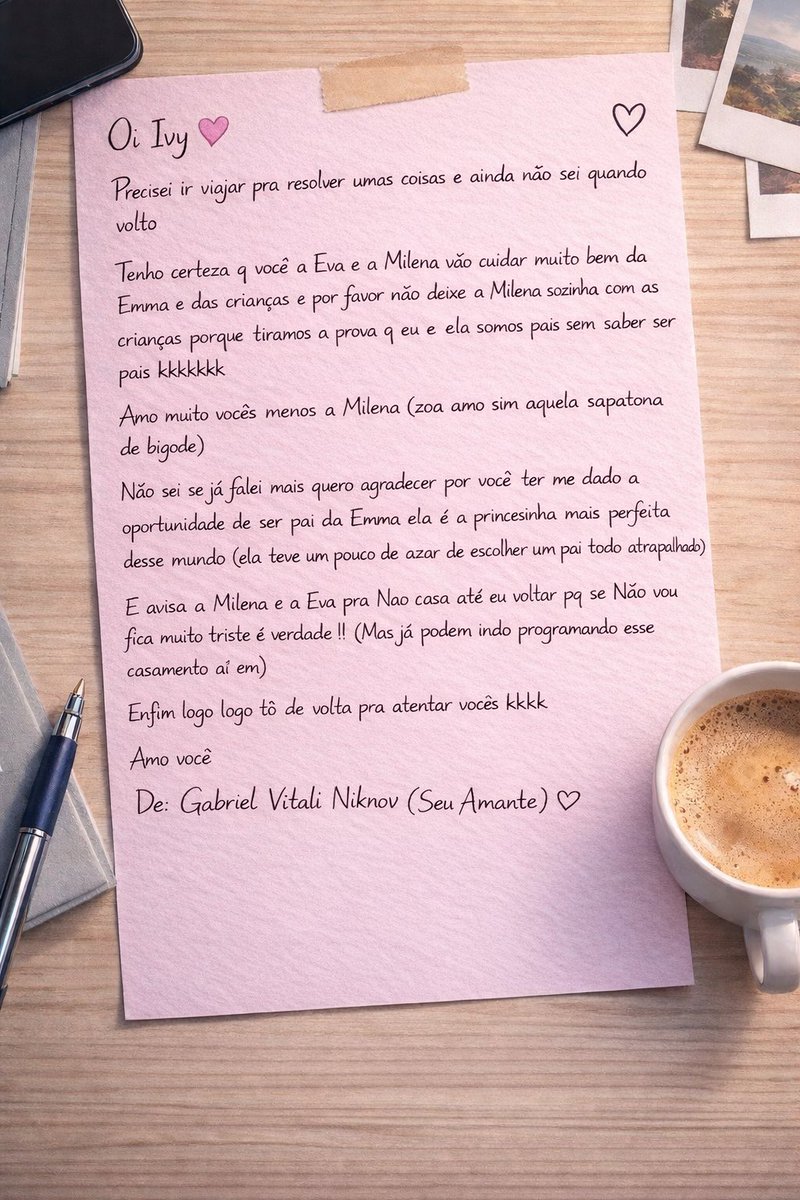 Oi Ivy 🩷 ♡
Precisei ir viajar pra resolver umas coisas e ainda não sei quando
volto
Tenho certeza q você a Eva e a Milena vão cuidar muito bem da
Emma e das crianças e por favor não deixe a Milena sozinha com as
crianças porque tiramos a prova q eu e ela somos pais sem saber ser
pais kkkkkkk
Amo muito vocês menos a Milena (zoa amo sim aquela sapatona
de bigode)
Não sei se já falei mais quero agradecer por você ter me dado a
oportunidade de ser pai da Emma ela é a princesinha mais perfeita
desse mundo (ela teve um pouco de azar de escolher um pai todo atrapalhado)
E avisa a Milena e a Eva pra Nao casa até eu voltar pq se Não vou
fica muito triste é verdade !! (Mas já podem indo programando esse
casamento aí em)
Enfim logo logo tô de volta pra atentar vocês kkkk
Amo você
De: Gabriel Vitali Niknov (Seu Amante) ♡